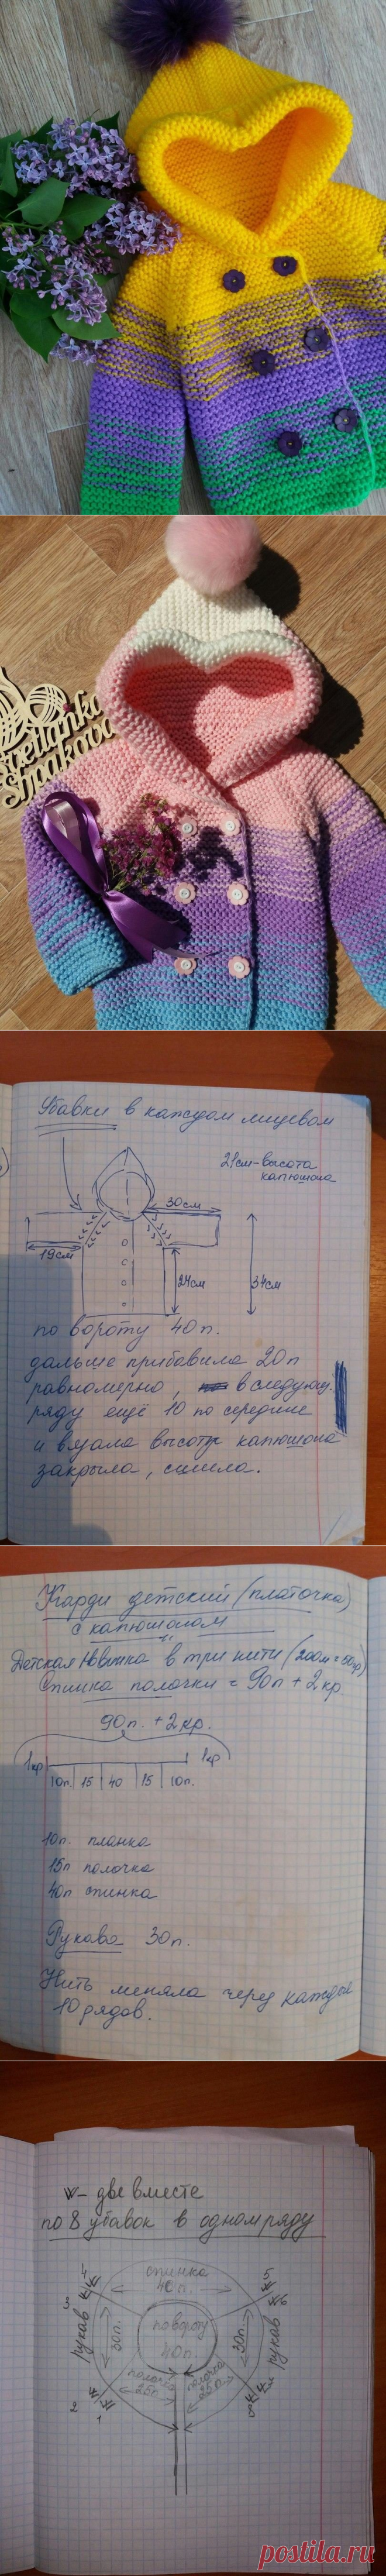 Svetlanka
Shpakova
Убавки в каждом лицевом
21см-высота
капюшона
30см
19см
24см
34см
по вороту 40п.
дальше прибавила 20п
равномерно, в следующ.
ряду ещё 10 по середине
и вязала высоту капюшона
закрыла, сшила.
Карди детский (платочка)
с капюшоном
Детская Новинка в три нити (200м=50гр)
Спинка полочки = 90п + 2кр.
90п. + 2кр.
1кр
1кр
10п. 15 40 15 10п.
10п. планка
15п полочка
40п спинка
Рукава 30п.
Нить меняла через каждые
10 рядов.
- две вместе
по 8 убавок в одном ряду
спинка
40п.
4
3
5
6
рукав
30п.
по вороту
40п.
30п.
рукав
полочка
25п
полочка
25п
2
1
8
7
postila.ru